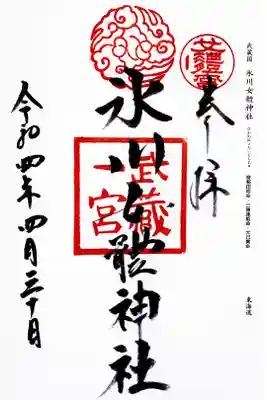 武蔵国 氷川女體神社
東海道
奉拝
氷川女體神社
武蔵
一宮
令和四年四月三十日